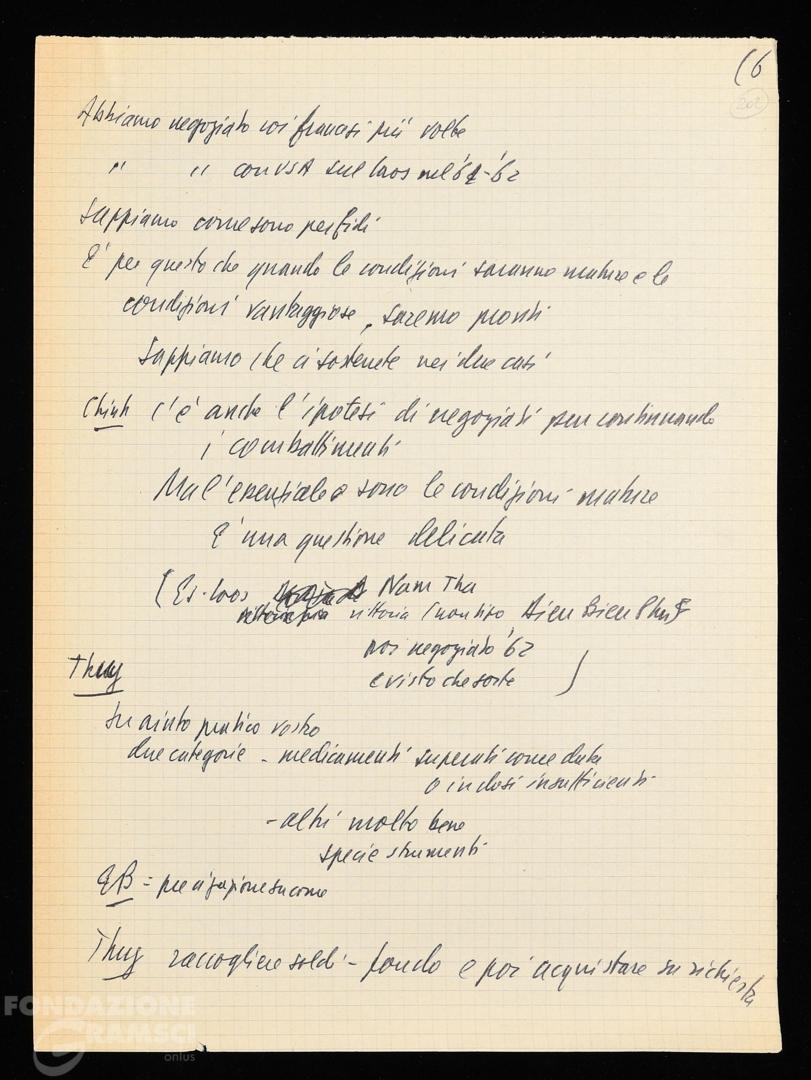 (6
202
Abbiamo negoziato coi francesi più volte
" " con USA sul Laos nel '61-'62
Sappiamo come sono perfidi
E' per questo che quando le condizioni saranno mature e le
condizioni vantaggiose, saremo pronti
Sappiamo che ci sostenete nei due casi
Chinh c'è anche l'ipotesi di negoziati pur continuando
i combattimenti
Ma l'essenziale sono le condizioni mature
E' una questione delicata
(Es. Laos Nam Tha
vittoria Dien Bien Phu
poi negoziato '62
e visto che sorte )
Thuy
Su aiuto pratico vostro
due categorie - medicamenti superati come data
o in dosi insufficienti
- altri molto bene
specie strumenti
EB = precisazione su come
Thuy raccogliere soldi - fondo e poi acquistare su richiesta
FONDAZIONE
GRAMSCI
onlus